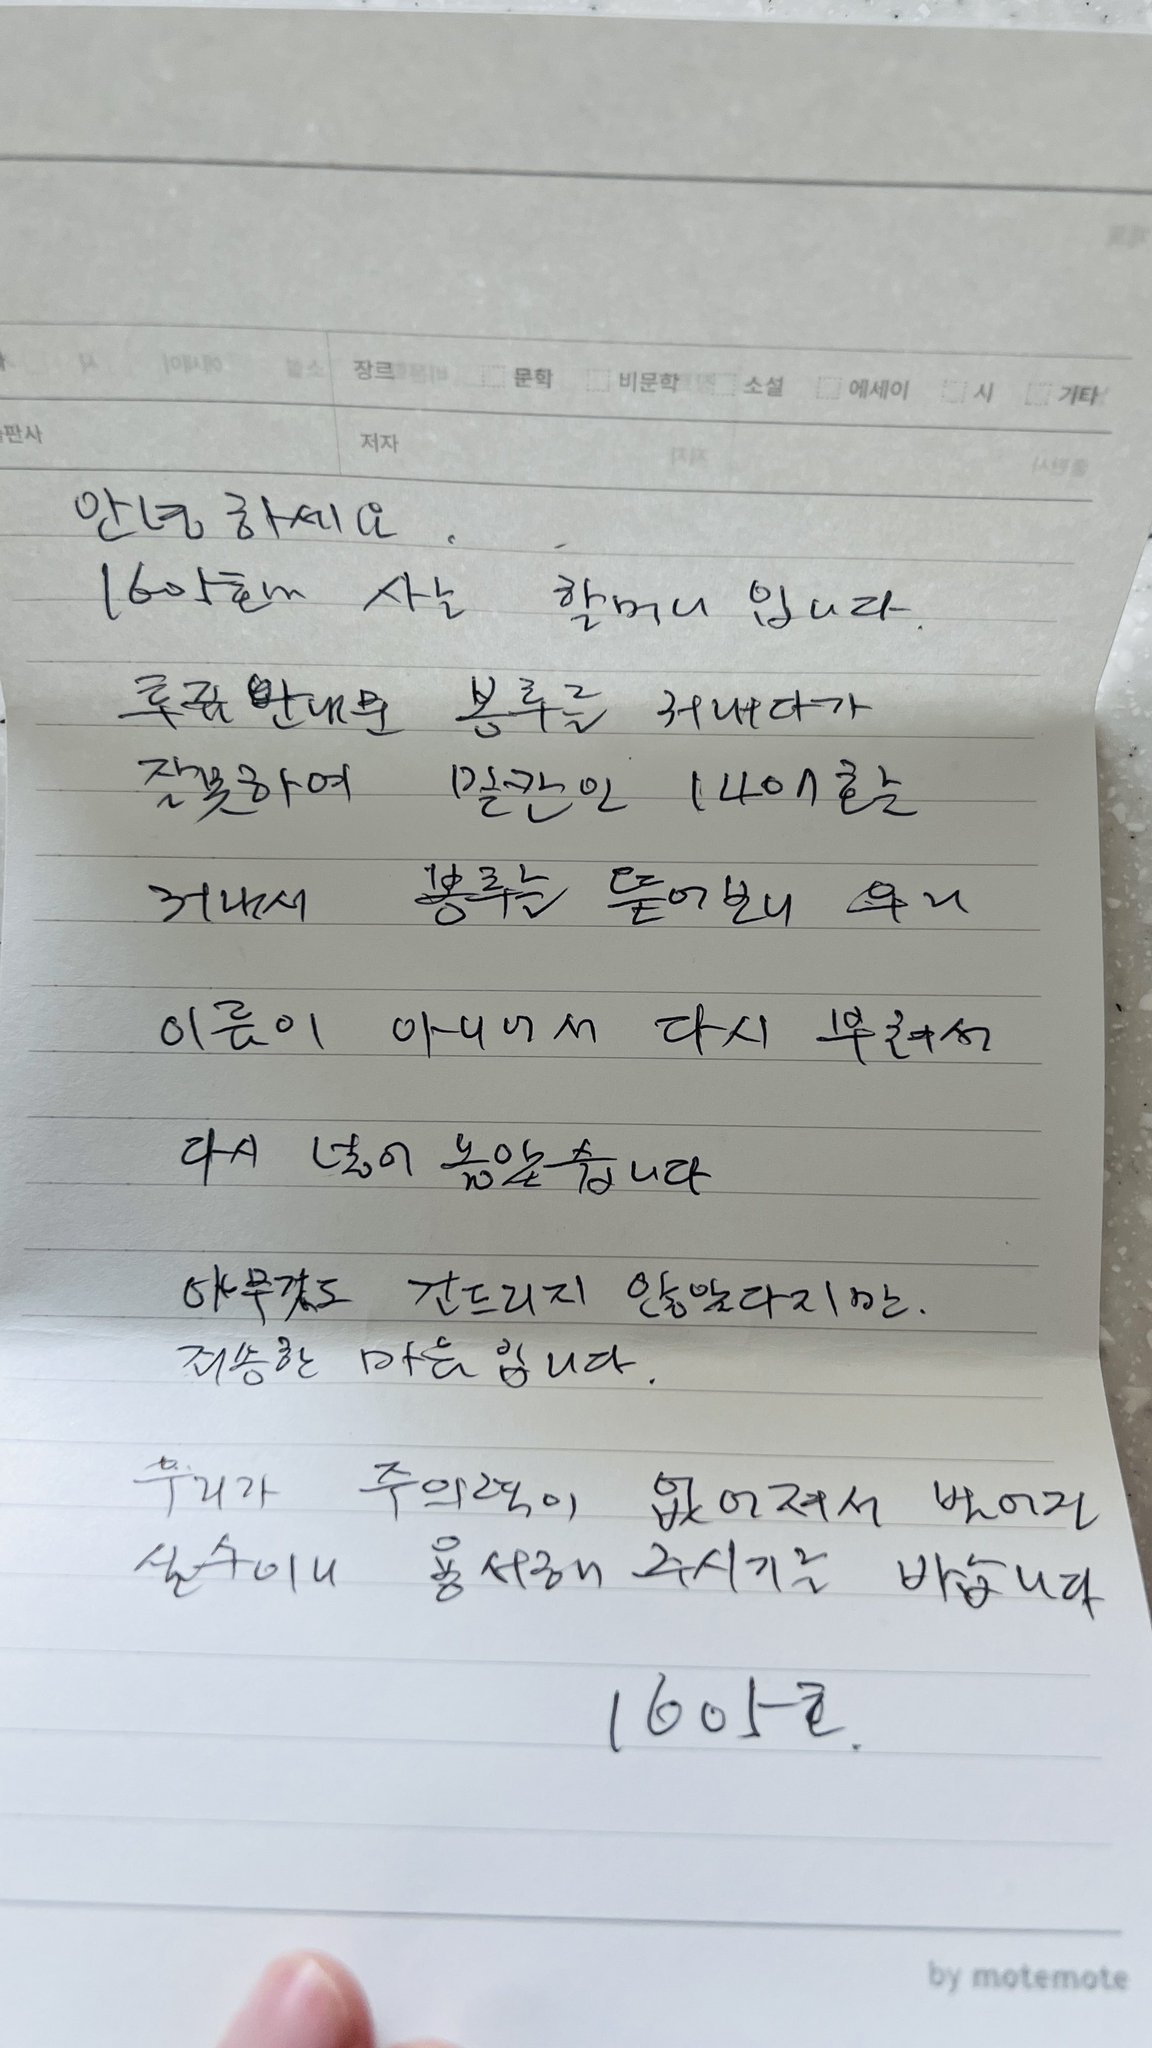 장르 문학 비문학 소설 에세이 시 기타
판사 저자
안녕하세요.
1605호에 사는 할머니 입니다.
투표 안내문 봉투를 꺼내다가
잘못하여 밑칸인 1405호를
꺼내서 봉투를 뜯어보니 우리
이름이 아니어서 다시 부쳐서
다시 넣어 놓았습니다
아무것도 건드리지 않았다지만.
죄송한 마음입니다.
우리가 주의력이 없어져서 벌어진
실수이니 용서해 주시기를 바랍니다
1605호.
by motemote